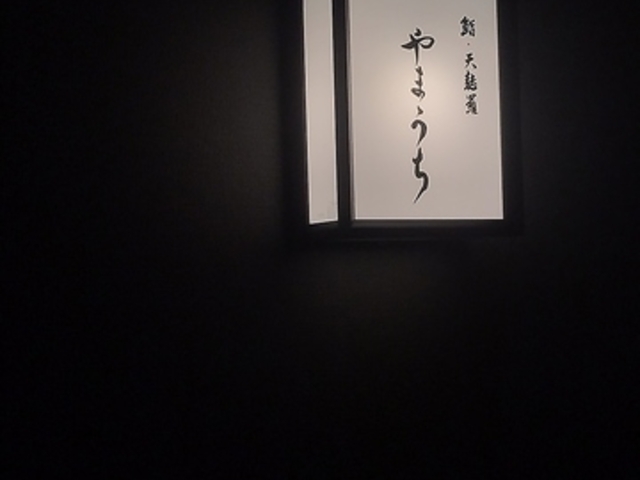 鮨・天麩羅
やまうち